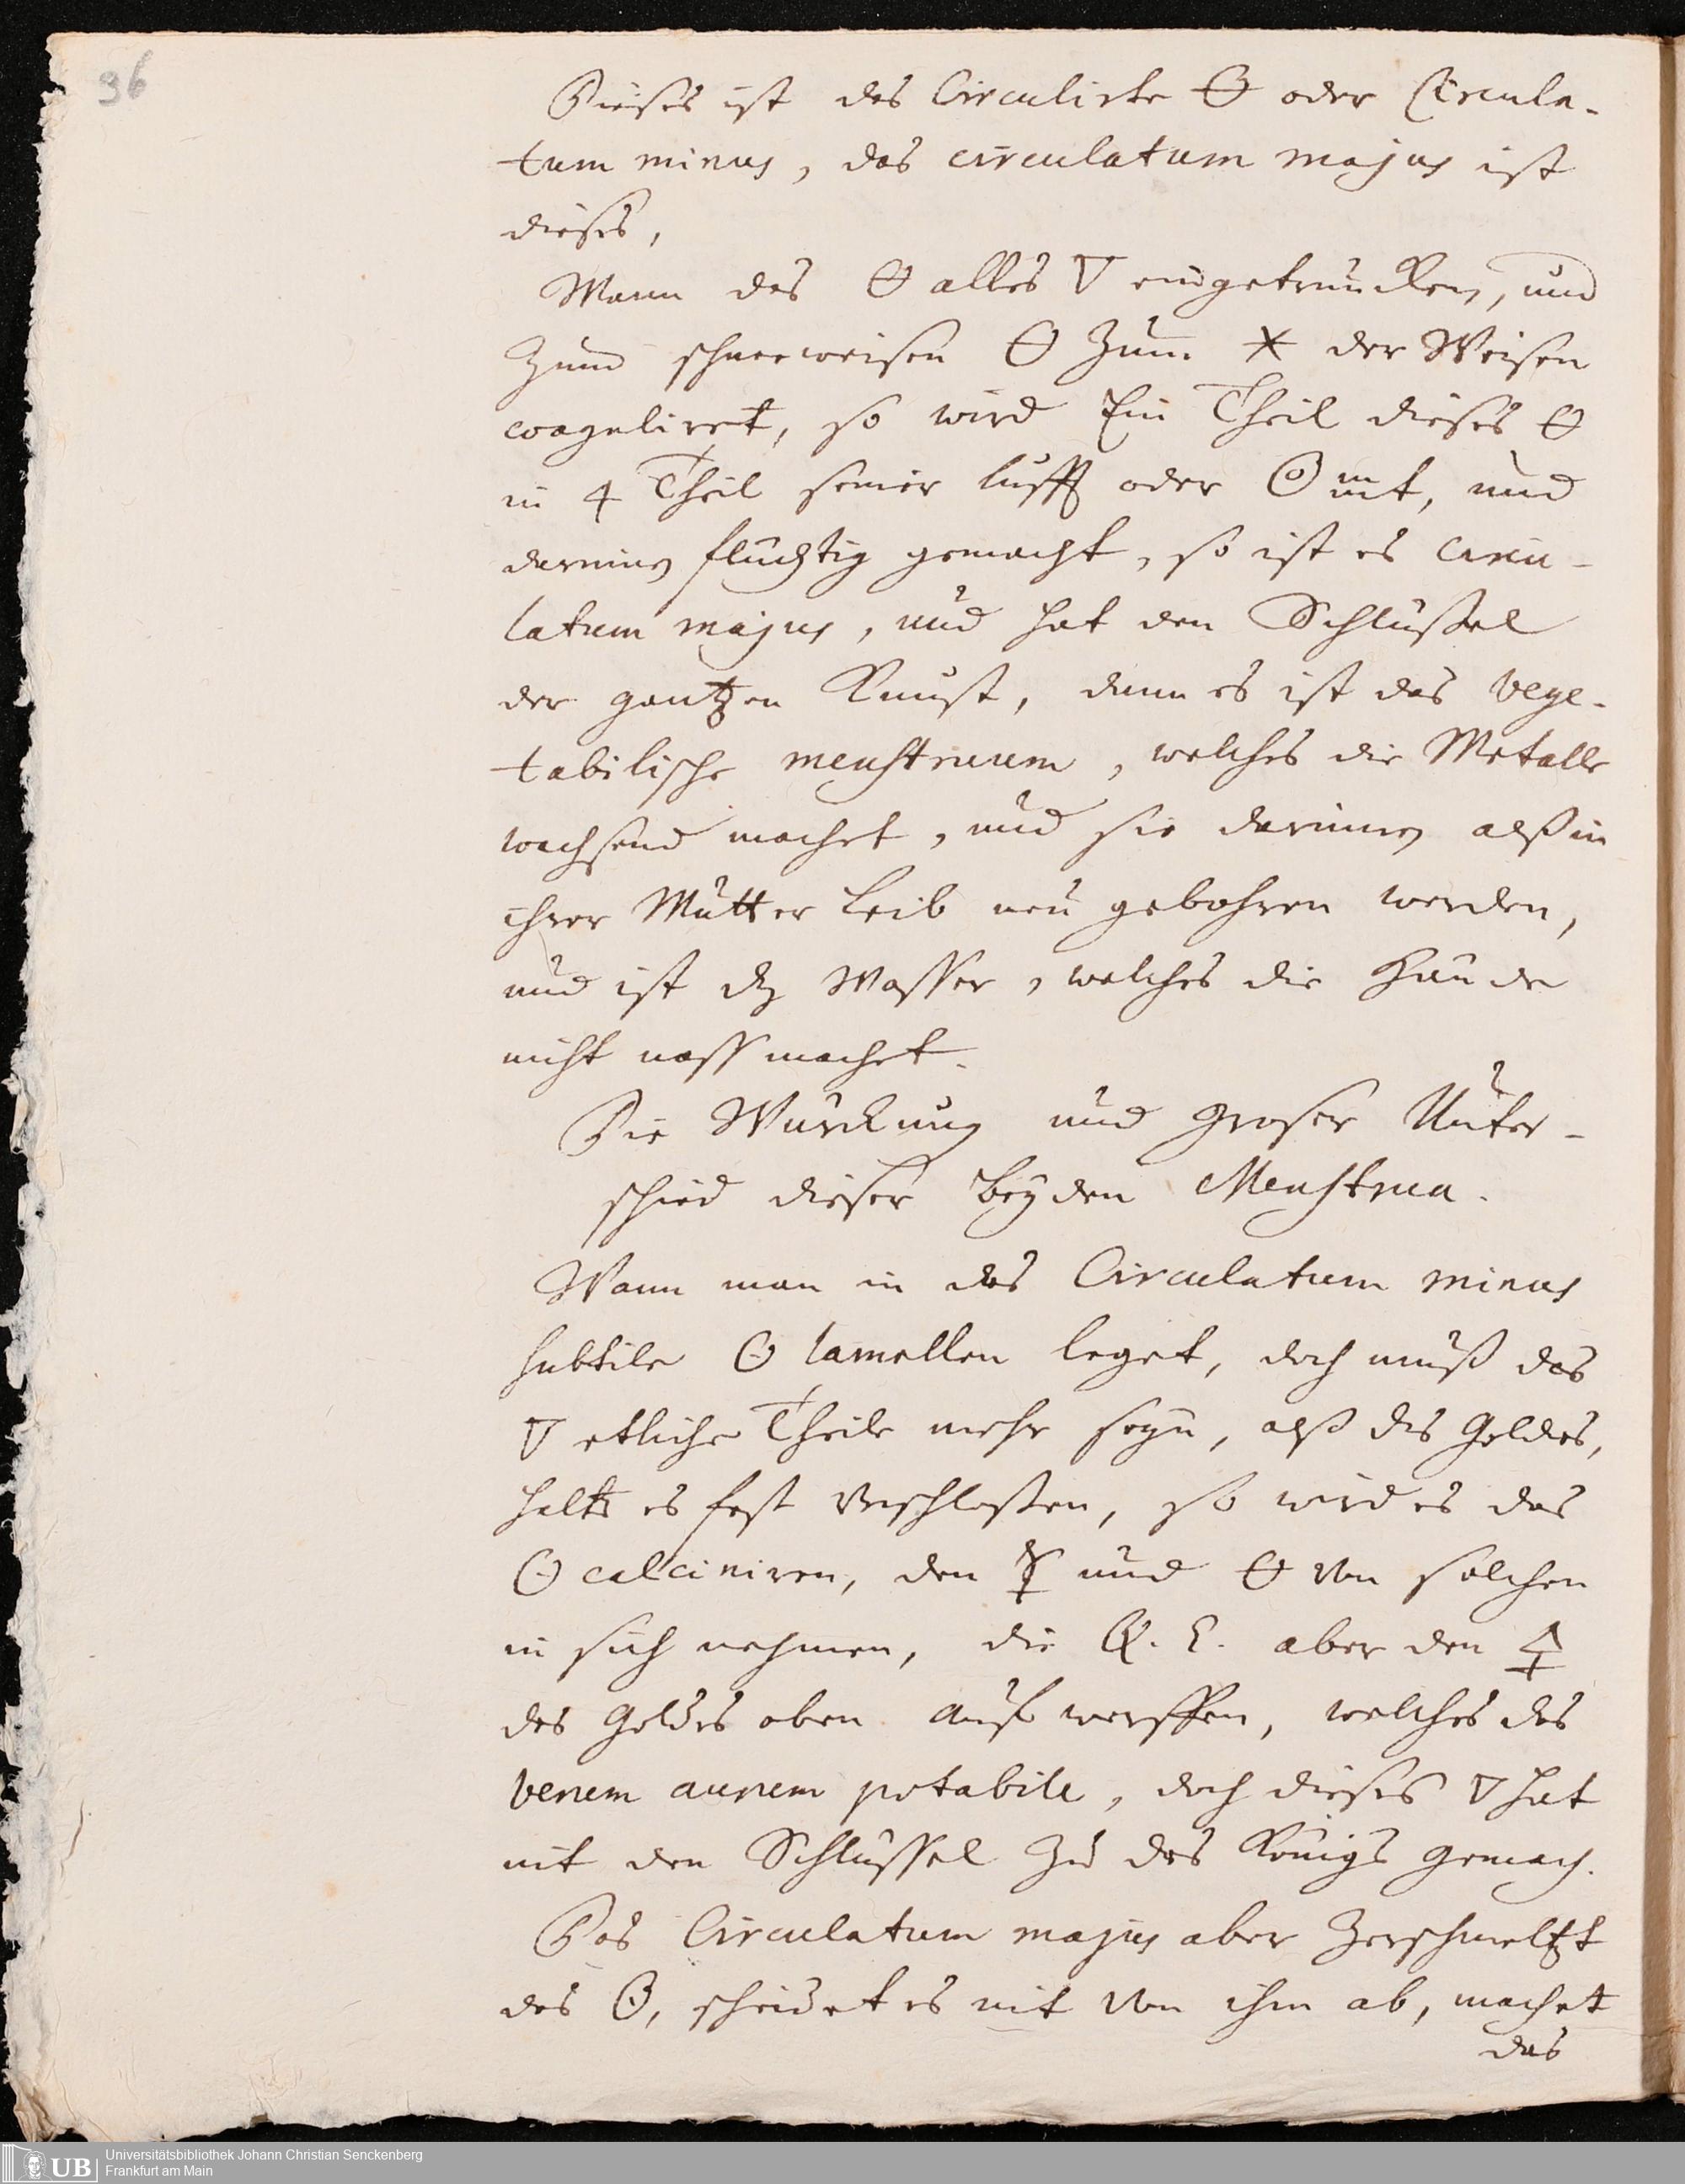 36
Dieses ist das Circulirte 🜔 oder Circula-
tum minus, das circulatum majus ist
dieses,
Wann das 🜔 alles ▽ eingetruncken, und
zum schneeweisen 🜔 zum ⚹ der Weisen
coaguliret, so wird Ein Theil dieses 🜔
in 4 Theil seiner lufft oder und
darinn fluchtig gemacht, so ist es circu-
latum majus, und hat den Schlüßel
der gantzen Kunst, dann es ist das vege-
tabilische menstruum, welches die Metalle
wachsend machet, und sie darinnen alß in
ihrer Mutter Leib neu gebohren werden,
und ist dz Wasser, welches die Hände
nicht nass machet.
Die Würckung und groser Unter-
schied dieser beyden Menstrua.
Wann man in das Circulatum minus
subtile ☉ lamellen leget, doch muß das
▽ etliche Theile mehr seyn, alß des Goldes,
halte es fest verschloßen, so wird es das
☉ calciniren, den ☿ und 🜔 von solchen
in sich nehmen, die Q. E. aber den 🜍
des Goldes oben auf werffen, welches das
verum aurum potabile, doch dieses ▽ hat
nit den Schlüssel zu des Königs Gemach.
Das Circulatum majus aber zerschmeltzt
das ☉, scheidet es nit von ihm ab, machet
das
Universitätsbibliothek Johann Christian Senckenberg
Frankfurt am Main
UB